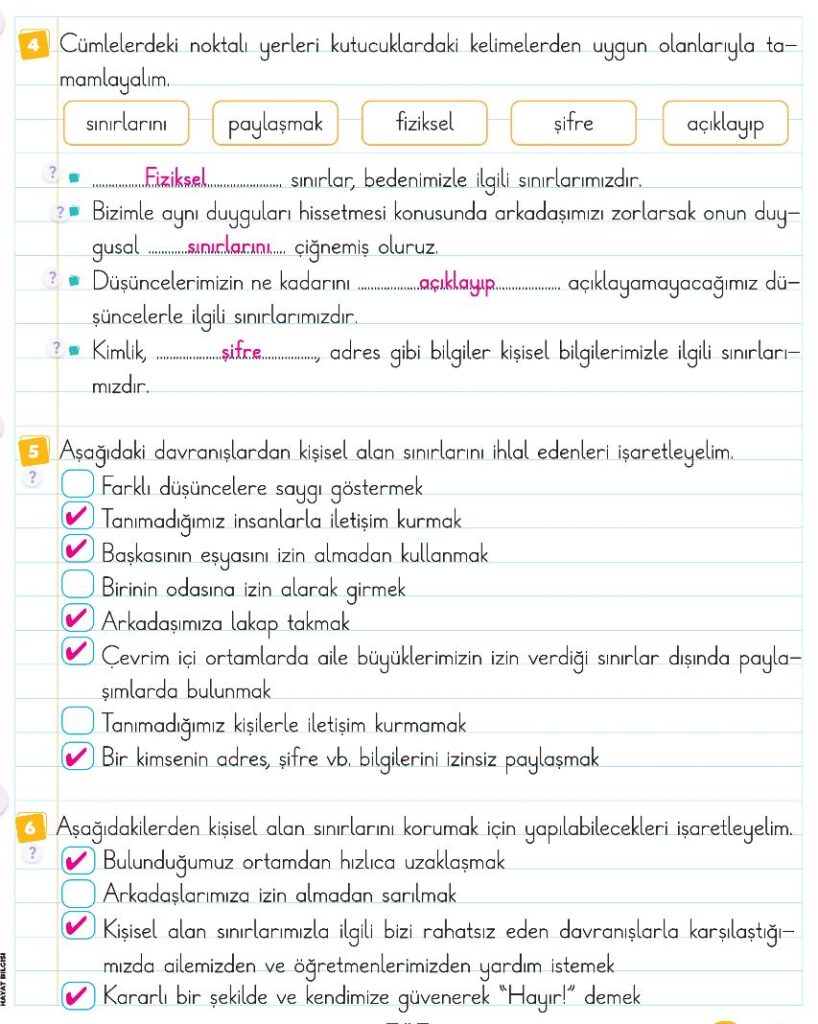 4 Cümlelerdeki noktalı yerleri kutucuklardaki kelimelerden uygun olanlarıyla ta-
mamlayalım.
sınırlarını paylaşmak fiziksel şifre açıklayıp
? Fiziksel sınırlar, bedenimizle ilgili sınırlarımızdır.
? Bizimle aynı duyguları hissetmesi konusunda arkadaşımızı zorlarsak onun duy-
gusal sınırlarını çiğnemiş oluruz.
? Düşüncelerimizin ne kadarını açıklayıp açıklayamayacağımız dü-
şüncelerle ilgili sınırlarımızdır.
? Kimlik, şifre, adres gibi bilgiler kişisel bilgilerimizle ilgili sınırları-
mızdır.
5 Aşağıdaki davranışlardan kişisel alan sınırlarını ihlal edenleri işaretleyelim.
? Farklı düşüncelere saygı göstermek
✔ Tanımadığımız insanlarla iletişim kurmak
✔ Başkasının eşyasını izin almadan kullanmak
Birinin odasına izin alarak girmek
✔ Arkadaşımıza lakap takmak
✔ Çevrim içi ortamlarda aile büyüklerimizin izin verdiği sınırlar dışında payla-
şımlarda bulunmak
Tanımadığımız kişilerle iletişim kurmamak
✔ Bir kimsenin adres, şifre vb. bilgilerini izinsiz paylaşmak
6 Aşağıdakilerden kişisel alan sınırlarını korumak için yapılabilecekleri işaretleyelim.
? ✔ Bulunduğumuz ortamdan hızlıca uzaklaşmak
Arkadaşlarımıza izin almadan sarılmak
✔ Kişisel alan sınırlarımızla ilgili bizi rahatsız eden davranışlarla karşılaştığı-
mızda ailemizden ve öğretmenlerimizden yardım istemek
✔ Kararlı bir şekilde ve kendimize güvenerek "Hayır!" demek
HAYAT BİLGİSİ